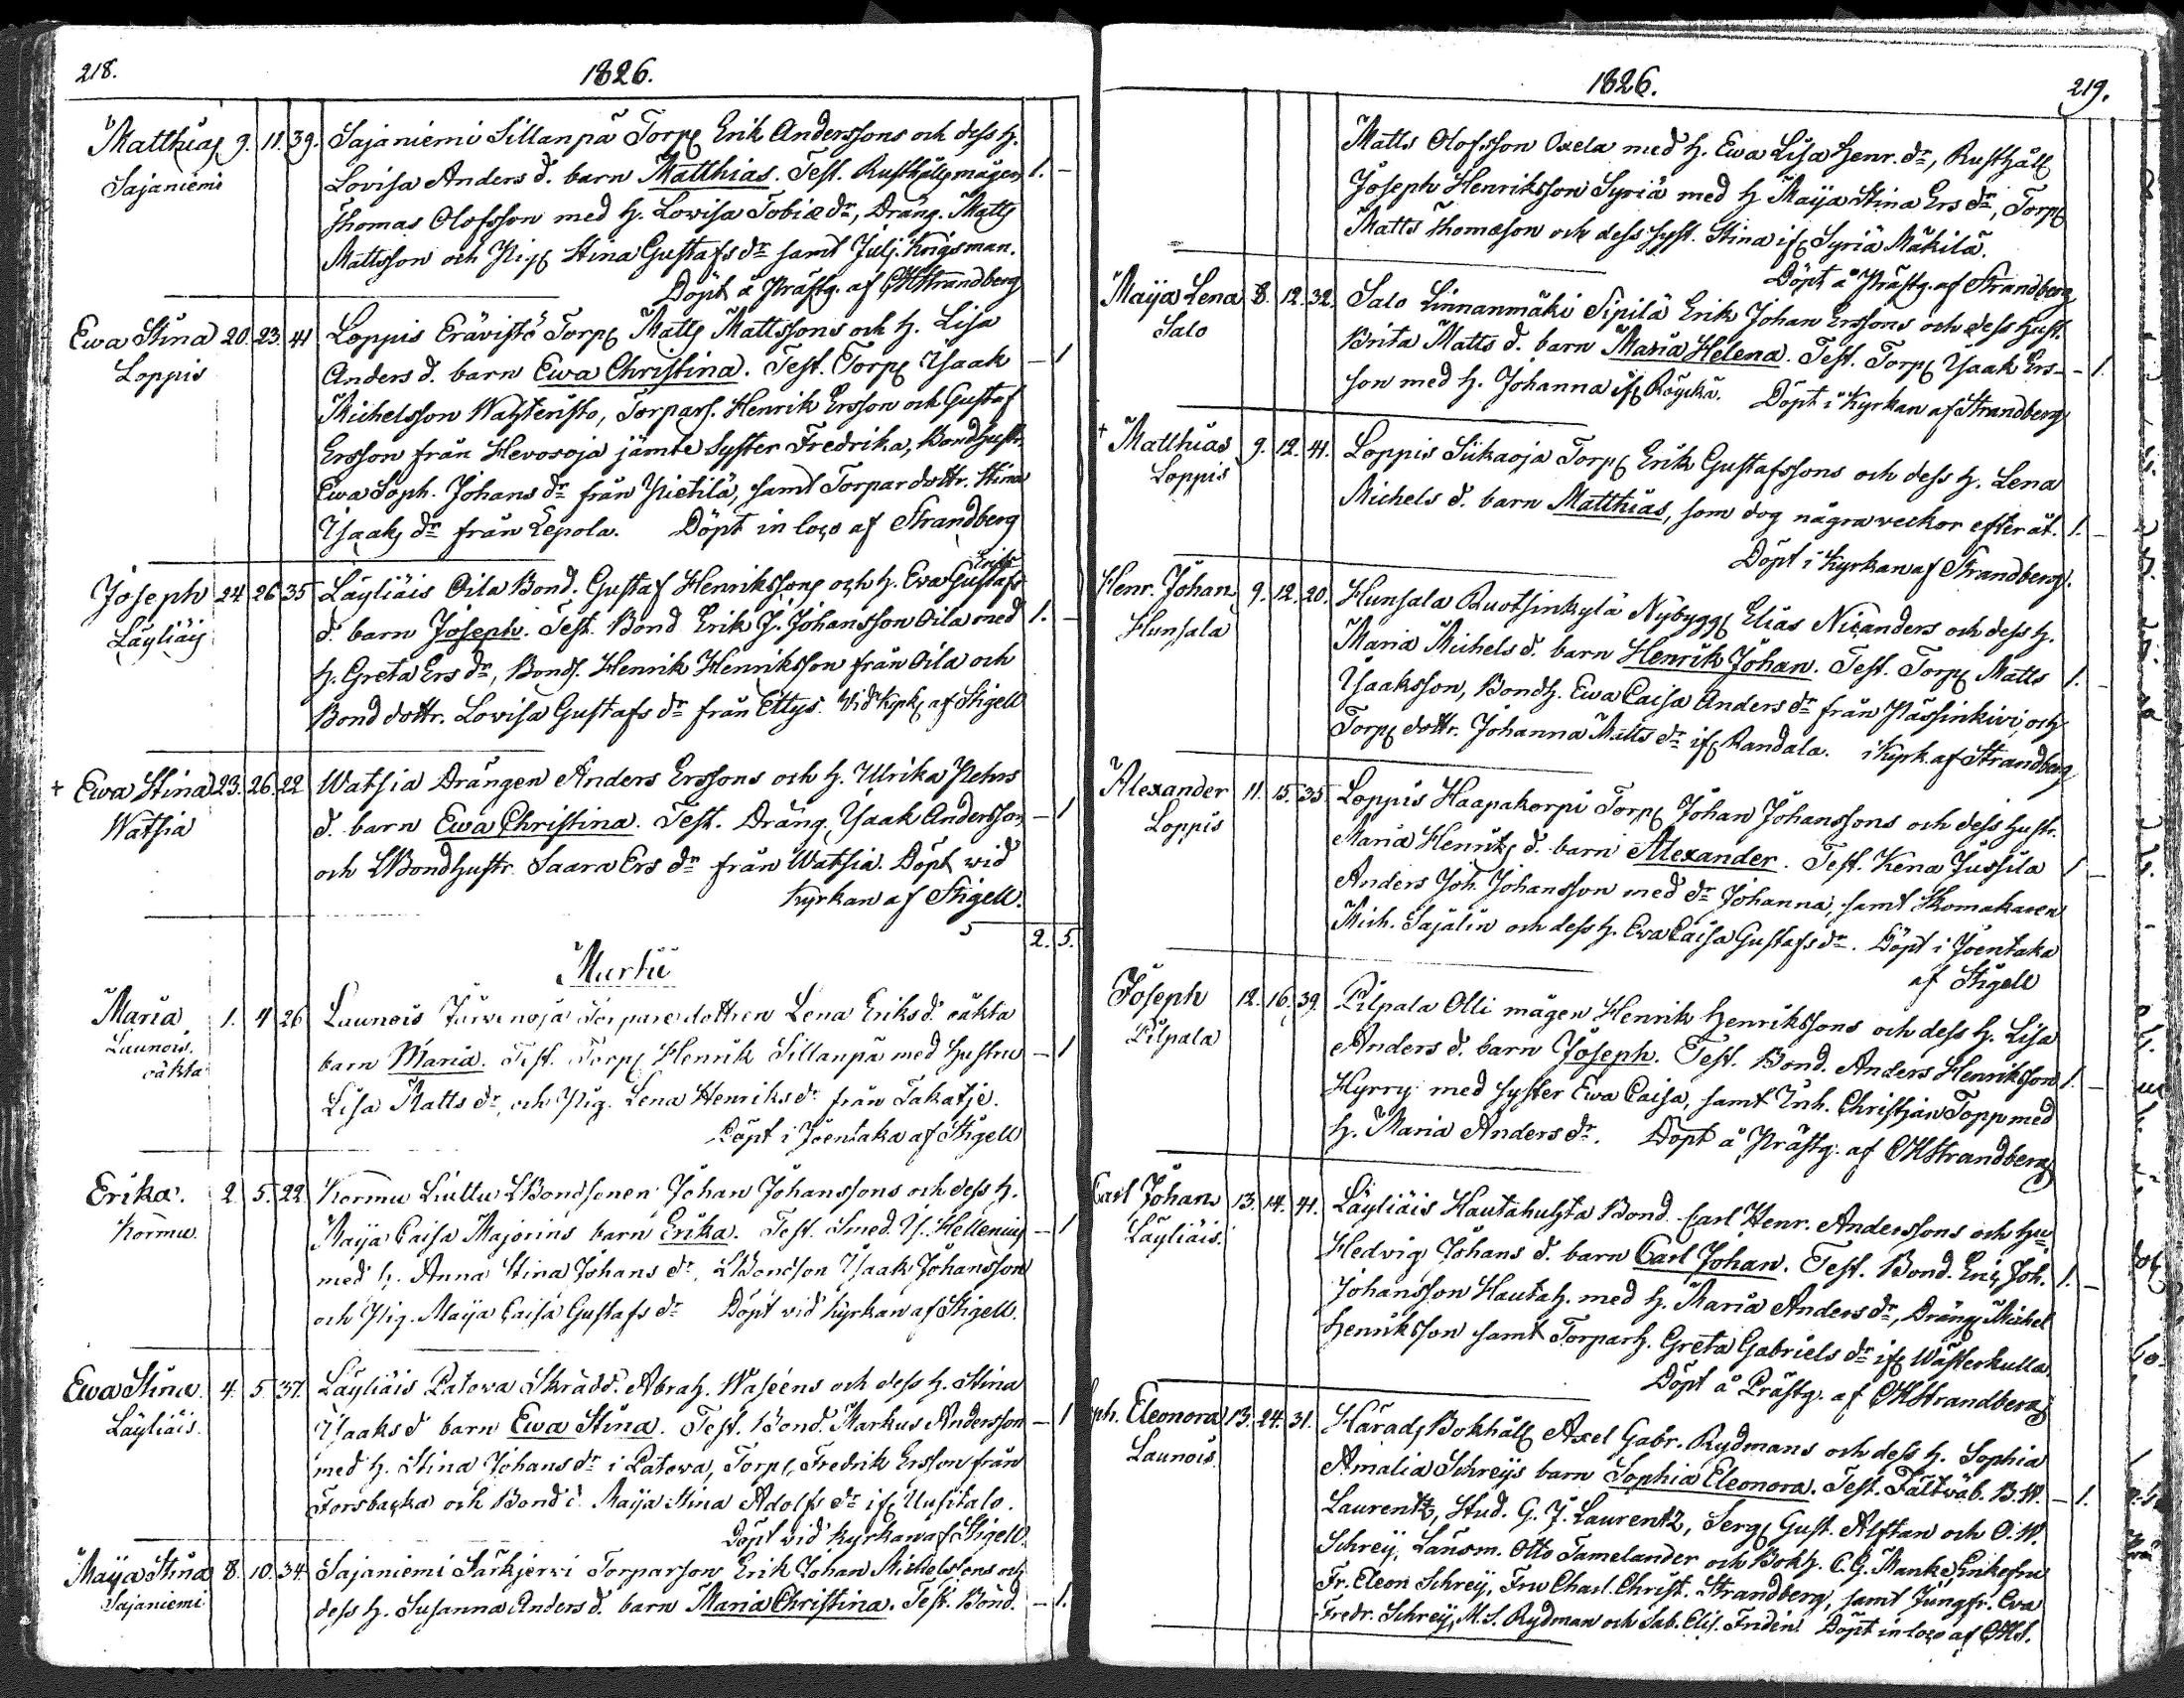 218. 1826.
Matthias 9. 11. 39. Sajaniemi Sillanpä Torp. Erik Anderssons och dess h.
Sajaniemi Lovisa Anders d. barn Matthias. Test. Rusthålls mågen 1. –
Thomas Olofsson med h. Lovisa Tobiæ dr, Dräng. Matts
Mattsson och Pig. Stina Gustafs dr samt Julj. Krigsman.
Döpt å Prästg. af OHStrandberg
Ewa Stina 20. 23. 41 Loppis Erävistö Torp. Matts Mattssons och h. Lisa
Loppis Anders d. barn Ewa Christina. Test. Torp. Isaak – 1
Michelsson Wahteristo, Torpars. Henrik Ersson och Gustaf
Ersson från Hevosoja jämte Syster Fredrika, Bondhustr.
Ewa Soph. Johans dr från Pietilä, samt Torpardottr. Stina
Isaaks dr från Lepola. Döpt in loco af Strandberg
Joseph 24 26 35 Läyliäis Oila Bond. Gustaf Henrikssons och h. Eva Gustafs
Läyliäis d. barn Joseph. Test. Bond Erik J. Johansson Oila med 1. –
h. Greta Ers dr, Bonds. Henrik Henriksson från Oila och
Bond dottr. Lovisa Gustafs dr från Ettys. Vid Kyrk. af Stigell
+ Ewa Stina 23. 26. 22 Watsia Drängen Anders Erssons och h. Ulrika Pehrs
Watsia d. barn Ewa Christina. Test. Dräng. Isaak Andersson – 1
och LBondhustr. Saara Ers dr från Watsia. Döpt wid
Kyrkan af Stigell.
2. 5.
Martii
Maria 1. 4 26 Launois Järvenoja Torparedottren Lena Eriks d. oäkta
Launois. barn Maria. Test. Torp. Henrik Sillanpä med hustru – 1
oäkta Lisa Matts dr, och Pig. Lena Henriks dr från Takatje.
Döpt i Joentaka af Stigell
Erika. 2. 5. 22. Kormu Liuttu LBondsonen Johan Johanssons och dess h.
Kormu. Maija Caisa Majorins barn Erika. Test. Smed. Is. Hellenius – 1
med h. Anna Stina Johans dr, LBondson Isaak Johansson
och Pig. Maija Caisa Gustafs dr Döpt vid Kyrkan af Stigell.
Ewa Stina. 4. 5. 37. Läyliäis Patowa Skrädd. Abrah. Waséens och dess h. Stina
Läyliäis. Isaaks d barn Ewa Stina. Test. Bond. Markus Andersson – 1
med h. Stina Johans dr i Patowa, Torp. Fredrik Ersson från
Forsbacka och Bond d. Maija Stina Adolfs dr if. Uusitalo.
Döpt vid Kyrkan af Stigell.
Maija Stina 8. 10. 34 Sajaniemi Särkjerwi Torparson Erik Johan Michelssons och
Sajaniemi dess h. Susanna Anders d. barn Maria Christina. Test. Bond. – 1.
1826. 219.
Matts Olofsson Oxela med h. Ewa Lisa Henr. dr, Rusthåll.
Joseph Henriksson Syriä med h. Maija Stina Ers dr, Torp.
Matts Thomasson och dess syst. Stina if. Syriä Mäkilä.
Döpt å Prästg. af Strandberg
Maija Lena 8. 12. 32. Salo Linnanmäki Sipilä Erik Johan Erssons och dess hust.
Salo Brita Matts d. barn Maria Helena. Test. Torp. Isaak Ers- – 1.
son med h. Johanna if. Räyskä. Döpt i Kyrkan af Strandberg
+ Matthias 9. 12. 41. Loppis Siikaoja Torp. Erik Gustafssons och dess h. Lena
Loppis Michels d. barn Matthias, som dog några veckor efteråt. 1. –
Döpt i Kyrkan af Strandberg.
Henr. Johan 9. 12. 20. Hunsala Ruotsinkylä Nybygg. Elias Nicanders och dess h.
Hunsala Maria Michels d. barn Henrik Johan. Test. Torp. Matts 1. –
Isaaksson, Bondh. Ewa Caisa Anders dr från Pässinkivi, och
Torp. dottr. Johanna Matts dr if. Randala. i Kyrk. af Strandberg
Alexander 11. 15. 35 Loppis Haapakorpi Torp. Johan Johanssons och dess hustr.
Loppis Maria Henriks d. barn Alexander. Test. Kena Jussila 1 –
Anders Joh. Johansson med dr Johanna, samt Skomakaren
Mich. Sajalin och dess h. Eva Caisa Gustafs dr. Döpt i Joentaka
af Stigell
Joseph 12. 16. 39. Pilpala Olli mågen Henrik Henrikssons och dess h. Lisa
Pilpala Anders d. barn Joseph. Test. Bond. Anders Henriksson 1. –
Hyrry med syster Ewa Caisa, samt Inh. Christian Topp med
h. Maria Anders dr. Döpt å Prästg. af OHStrandberg
Carl Johan 13. 14. 41. Läyliäis Hautahuhta Bond. Carl Henr. Anderssons och hu.
Läyliäis. Hedvig Johans d. barn Carl Johan. Test. Bond. Eric Joh. 1. –
Johansson Hautah. med h. Maria Anders dr, Dräng. Michel
Henriksson samt Torparh. Greta Gabriels dr if. Wästerkulla.
Döpt å Prästg. af OHStrandberg
Soph. Eleonora 13. 24. 31. Härads Bokhåll. Axel Gabr. Rydmans och dess h. Sophia
Launois Amalia Schreijs barn Sophia Eleonora. Test. Fältväb. B. W. – 1.
Laurentz, Stud. G. J. Laurentz, Serg. Gust. Alftan och O. W.
Schreij, Länsm. Otto Tamelander och Bokh. C. G. Manke, Enkefru
Fr. Eleon Schreij, Fru Charl. Christ. Strandberg, samt Jungfr. Eva
Fredr. Schreij, M. S. Rydman och Sab. Elis. Fridén. Döpt in loco af OHSt.